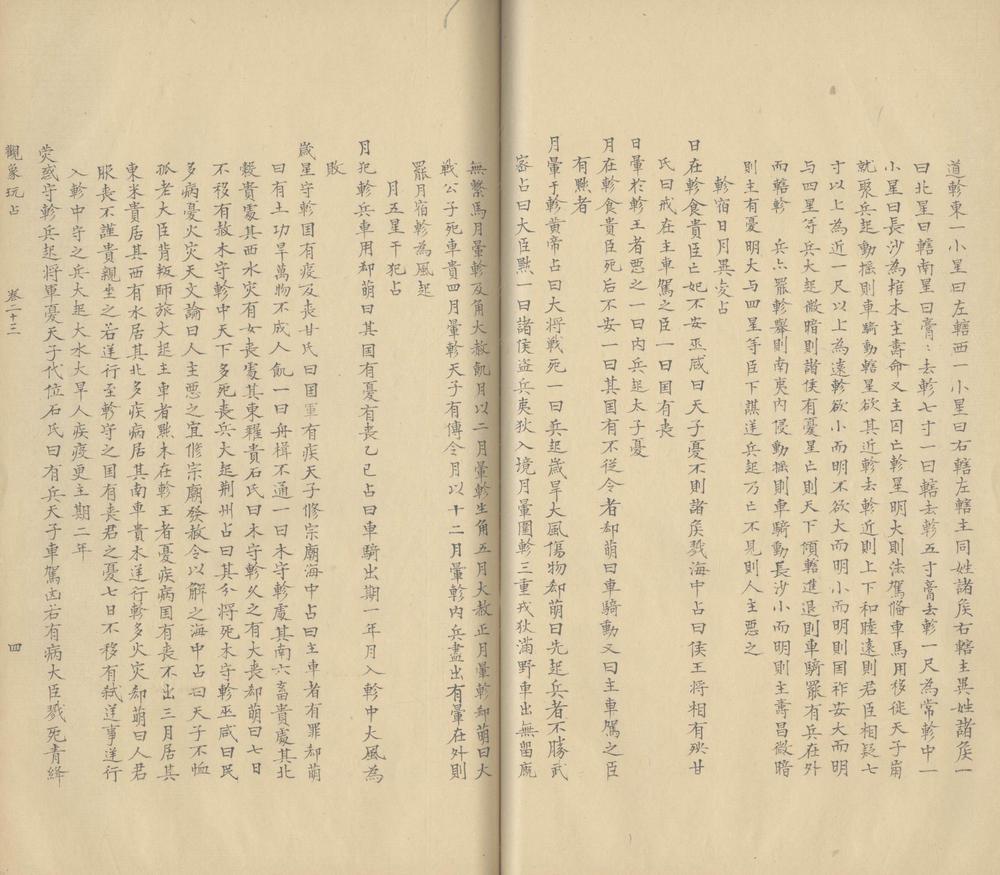 道軫東一小星曰左轄西一小星曰右轄左轄主同姓諸侯右轄主異姓諸侯一
曰北星曰轄南星曰膏〻去軫七寸一曰轄去軫五寸膏去軫一尺為常軫中一
小星曰長沙為棺木主壽命又主囚亡軫星明大則法駕俻車馬用移徙天子崩
就聚兵起動摇則車騎動轄星欲其近軫去軫近則上下和睦遠則君臣相疑七
寸以上為近一尺以上為遠軫欲小而明不欲大而明小而明則国祚安大而明
与四星等兵大起微暗則諸侯有憂星亡則天下傾轄進退則車騎罷有兵在外
而轄軫 兵亦罷軫舉則南夷内侵動摇則車騎動長沙小而明則主壽昌微暗
則主有憂明大与四星等臣下謀逆兵起乃亡不見則人主惡之
軫宿日月異变占
日在軫食貴臣亡妃不安巫咸曰天子憂不則諸侯戮海中占曰侯王將相有殃甘
氏曰戒在主車駕之臣一曰国有丧
日暈於軫王者惡之一曰内兵起太子憂
月在軫食貴臣死后不安一曰其国有不從令者却萌曰車騎動又曰主車駕之臣
有黜者
月暈于軫黄帝占曰大将戰死一曰兵起歲旱大風傷物却萌曰先起兵者不勝武
宻占曰大臣黜一曰諸侯盗兵夷狄入境月暈圍軫三重戎狄滿野車出無留廐
無繋馬月暈軫及角大赦飢月以二月暈軫生角五月大赦正月暈軫却萌曰大
戰公子死車貴四月暈軫天子有傳令月以十二月暈軫内兵盡出有暈在外則
罷月宿軫為風起
月五星干犯占
月犯軫兵車用却萌曰其国有憂有丧乙巳占曰車騎出期一年月入軫中大風為
敗
歲星守軫国有疫及丧甘氏曰国重有疾天子修宗廟海中占曰主車者有罪却萌
曰有土功旱萬物不成人飢一曰舟楫不通一曰木守軫處其南六畜貴處其北
糓貴處其西水灾有女丧處其東糴貴石氏曰木守軫久之有大丧却萌曰七日
不移有赦木守軫中天下多死丧兵大起荆州占曰其分将死木守軫巫咸曰民
多病憂火灾天文論曰人主惡之宜修宗廟發赦令以觧之海中占曰天子不恤
孤老大臣背叛師旅大起主車者黜木在軫王者憂疾病国有丧不出三月居其
東米貴居其西有水居其北多疾病居其南車貴木逆行軫多火灾却萌曰人君
服丧不謹貴親坐之若逆行至軫守之国有丧君之憂七日不移有弑逆事逆行
入軫中守之兵大起大水大旱人疾疫更主期二年
熒惑守軫兵起将軍憂天子代位石氏曰有兵天子車駕凶若有病大臣戮死青絳
觀象玩占 卷二十三 四